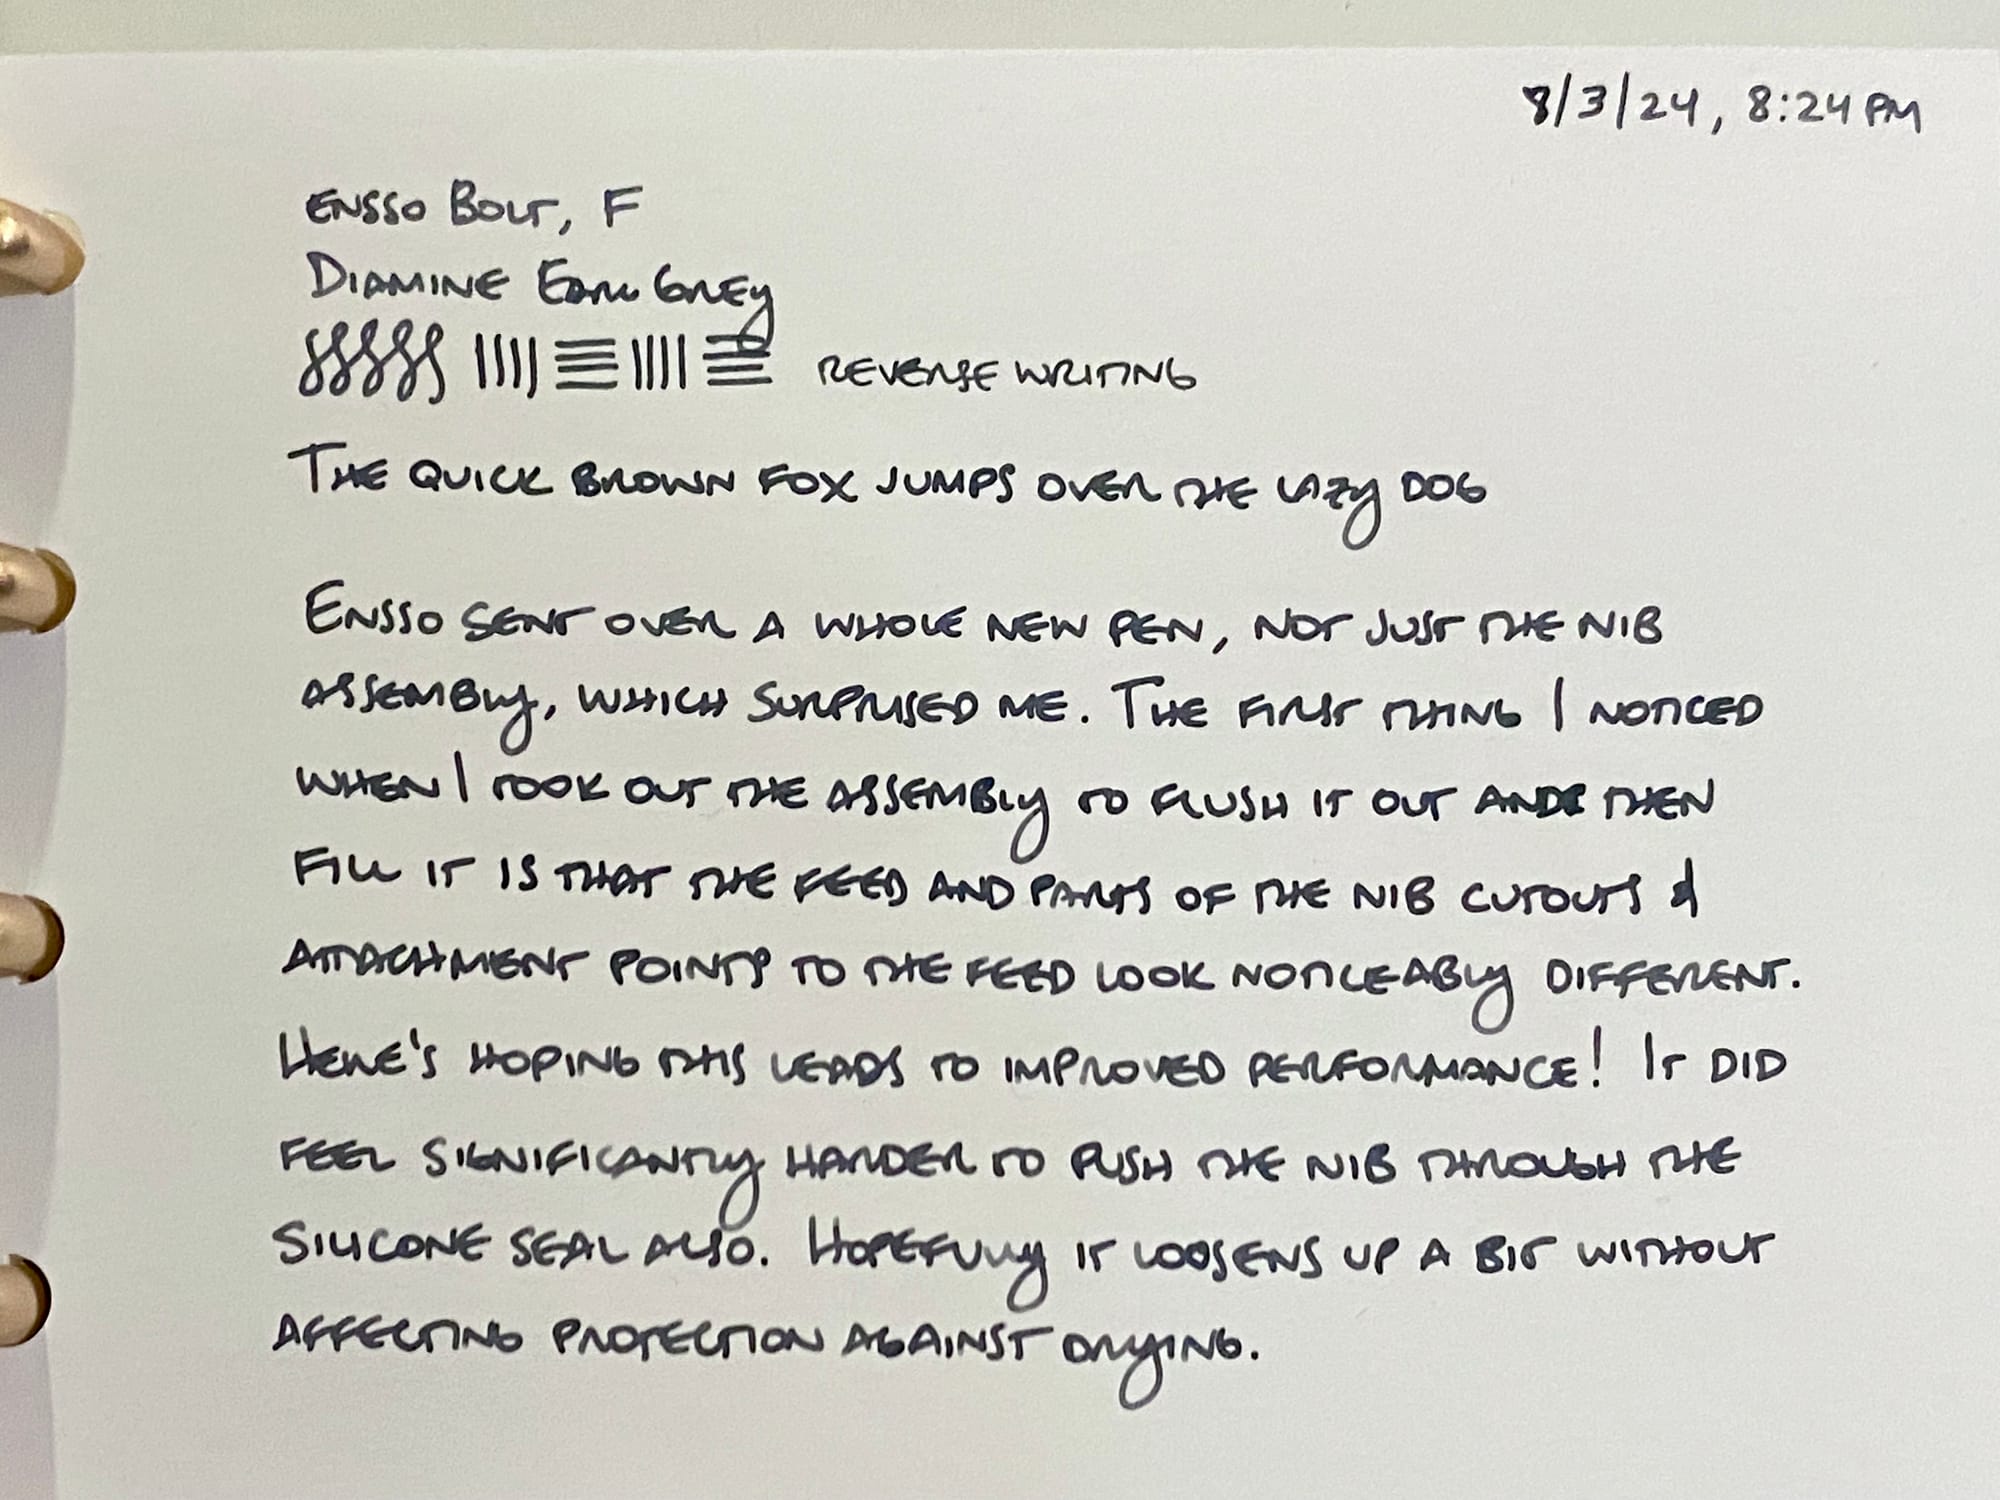 8/3/24, 8:24 PM
ENSSO BOLT, F
DIAMINE EARL GREY
REVERSE WRITING
THE QUICK BROWN FOX JUMPS OVER THE LAZY DOG
ENSSO SENT OVER A WHOLE NEW PEN, NOT JUST THE NIB
ASSEMBLY, WHICH SURPRISED ME. THE FIRST THING I NOTICED
WHEN I TOOK OUT THE ASSEMBLY TO FLUSH IT OUT AND THEN
FILL IT IS THAT THE FEED AND PARTS OF THE NIB CUTOUTS &
ATTACHMENT POINTS TO THE FEED LOOK NOTICEABLY DIFFERENT.
HERE'S HOPING THIS LEADS TO IMPROVED PERFORMANCE! IT DID
FEEL SIGNIFICANTLY HARDER TO PUSH THE NIB THROUGH THE
SILICONE SEAL ALSO. HOPEFULLY IT LOOSENS UP A BIT WITHOUT
AFFECTING PROTECTION AGAINST DRYING.